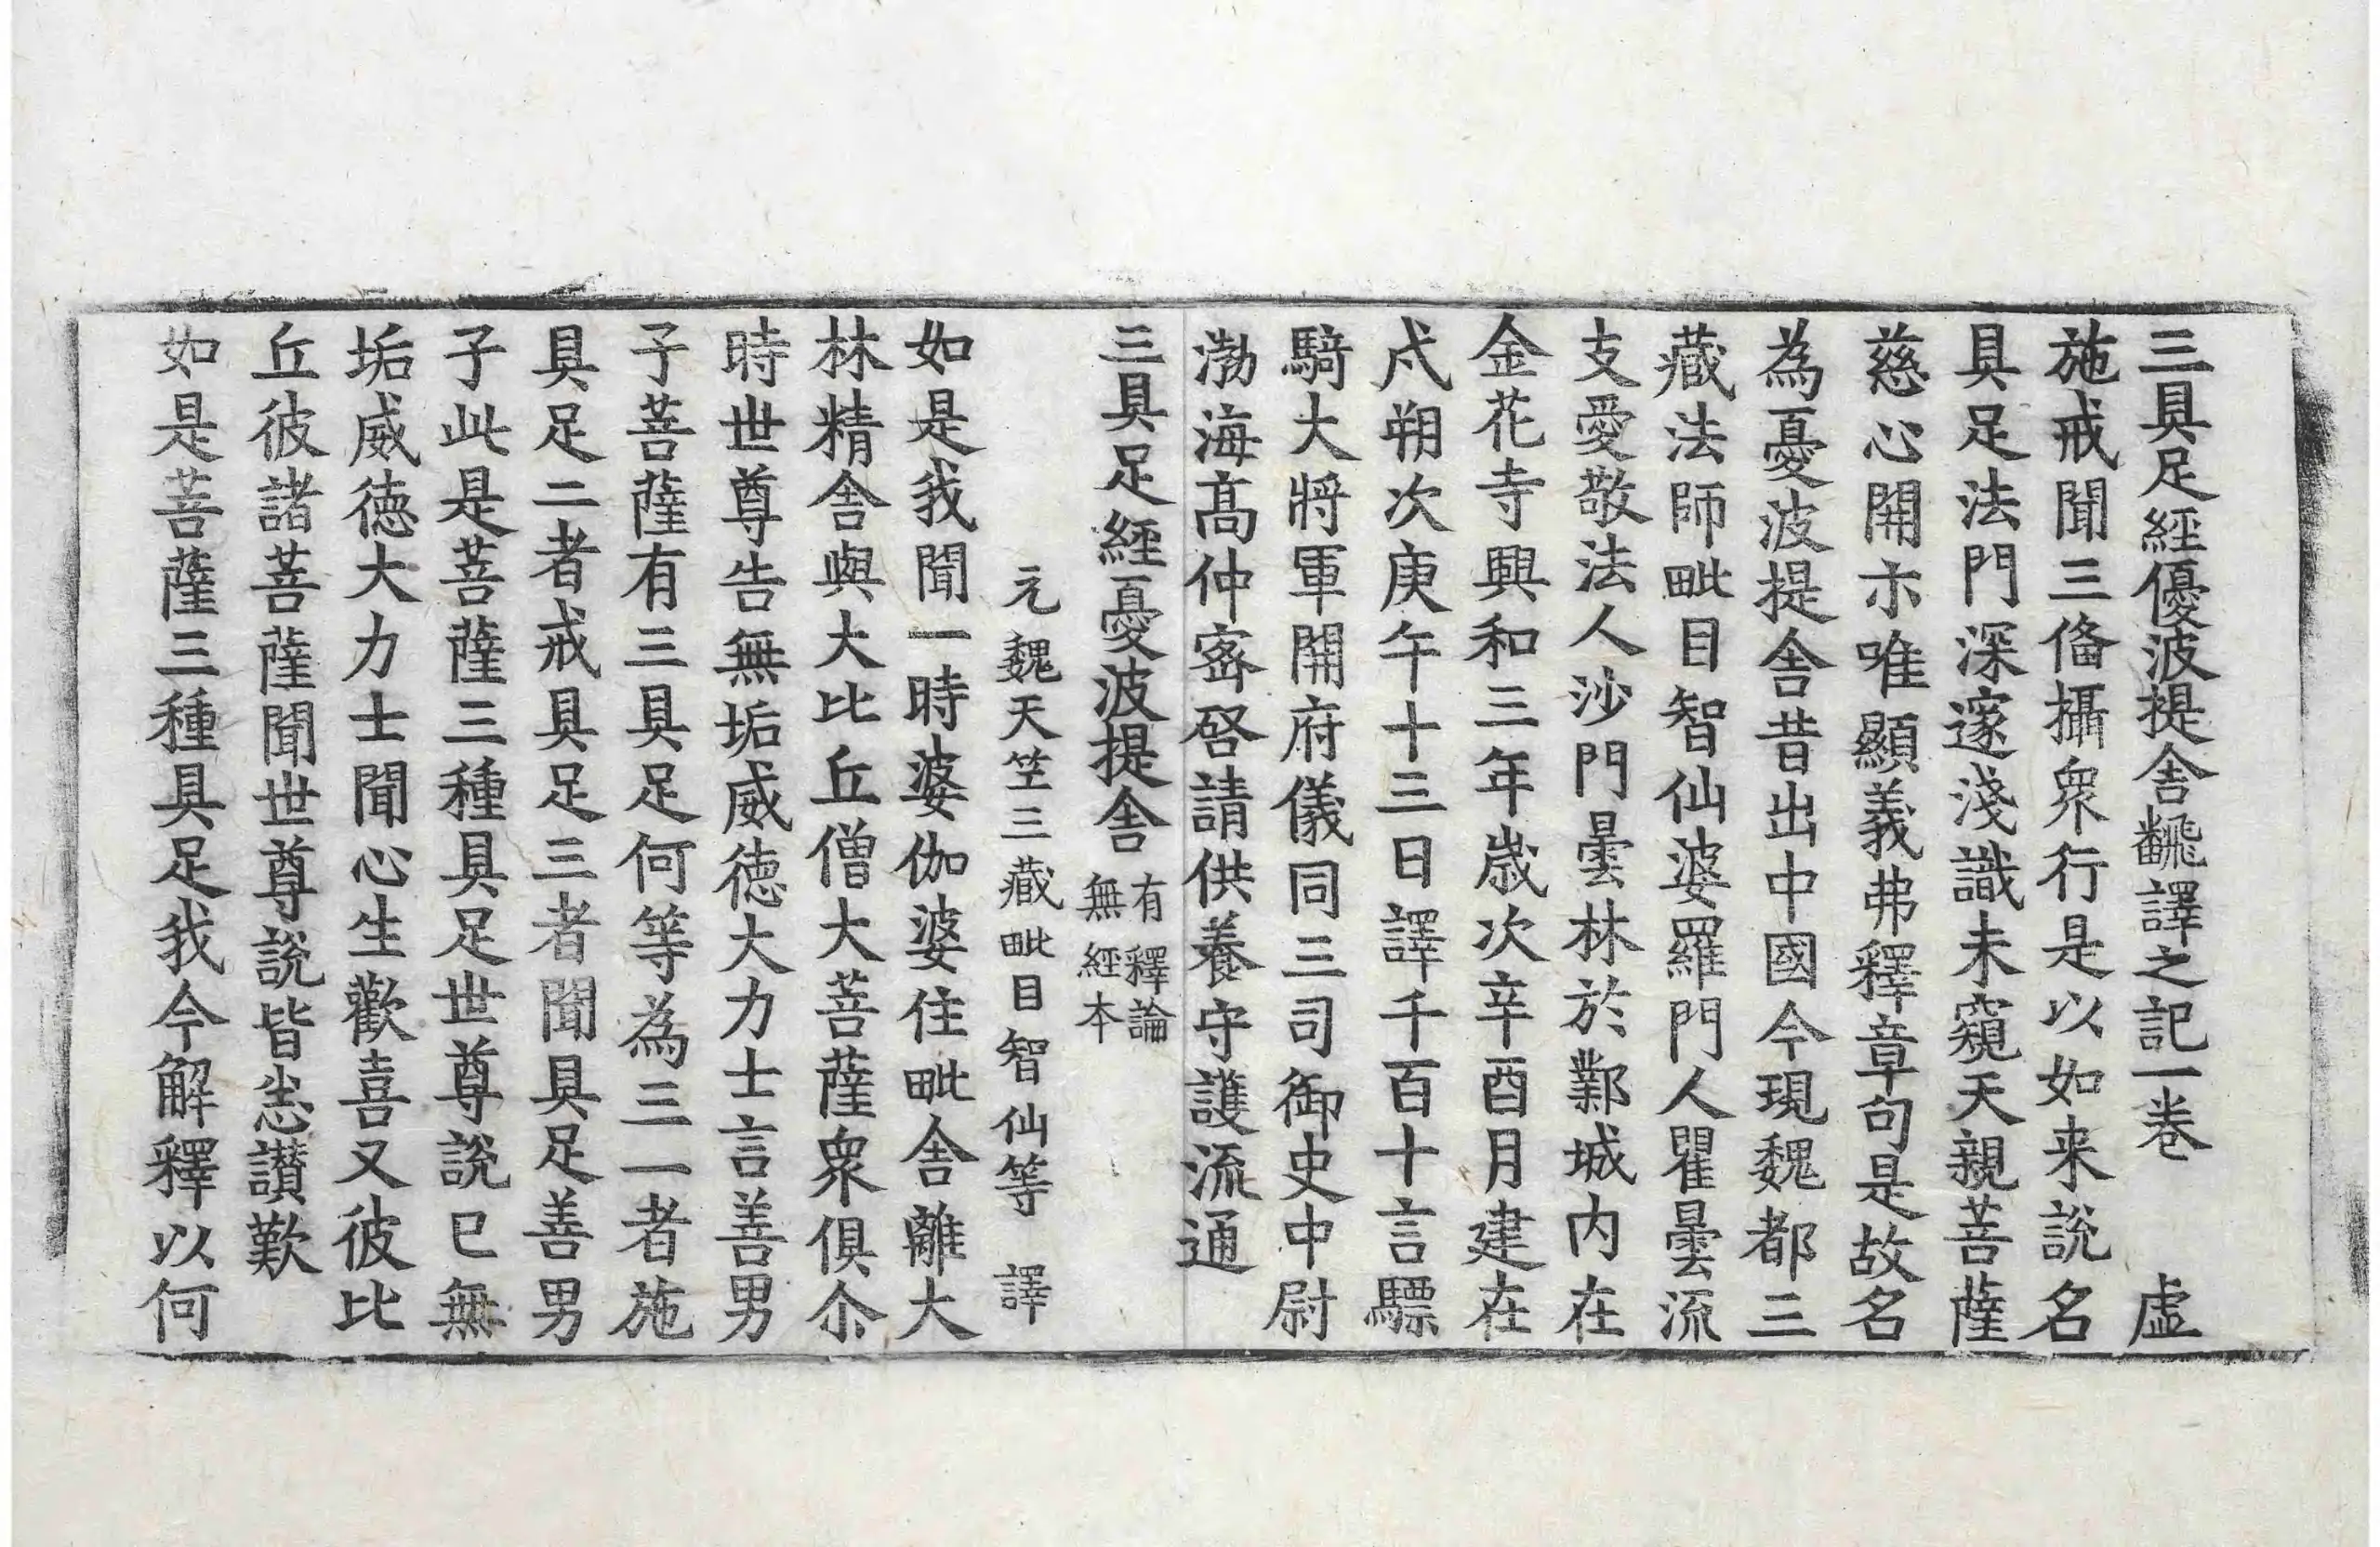 三具足經優波提舍飜譯之記一卷 虛
施戒聞三俻攝衆行是以如来說名
具足法門深邃淺識未窺天親菩薩
慈心開示唯顯義弗釋章句是故名
為憂波提舍昔出中國今現魏都三
藏法師毗目智仙婆羅門人瞿曇流
支愛敬法人沙門曇林於鄴城内在
金花寺興和三年歲次辛酉月建在
戌朔次庚午十三日譯千百十言驃
騎大將軍開府儀同三司御史中尉
渤海髙仲宻啓請供養守護流通
三具足經憂波提舍 有釋論
無經本
元魏天竺三藏毗目智仙等 譯
如是我聞一時婆伽婆住毗舍離大
林精舍與大比丘僧大菩薩衆俱尒
時世尊告無垢威德大力士言善男
子菩薩有三具足何等為三一者施
具足二者戒具足三者聞具足善男
子此是菩薩三種具足世尊說已無
垢威德大力士聞心生歡喜又彼比
丘彼諸菩薩聞世尊說皆悉讚歎
如是菩薩三種具足我今解釋以何